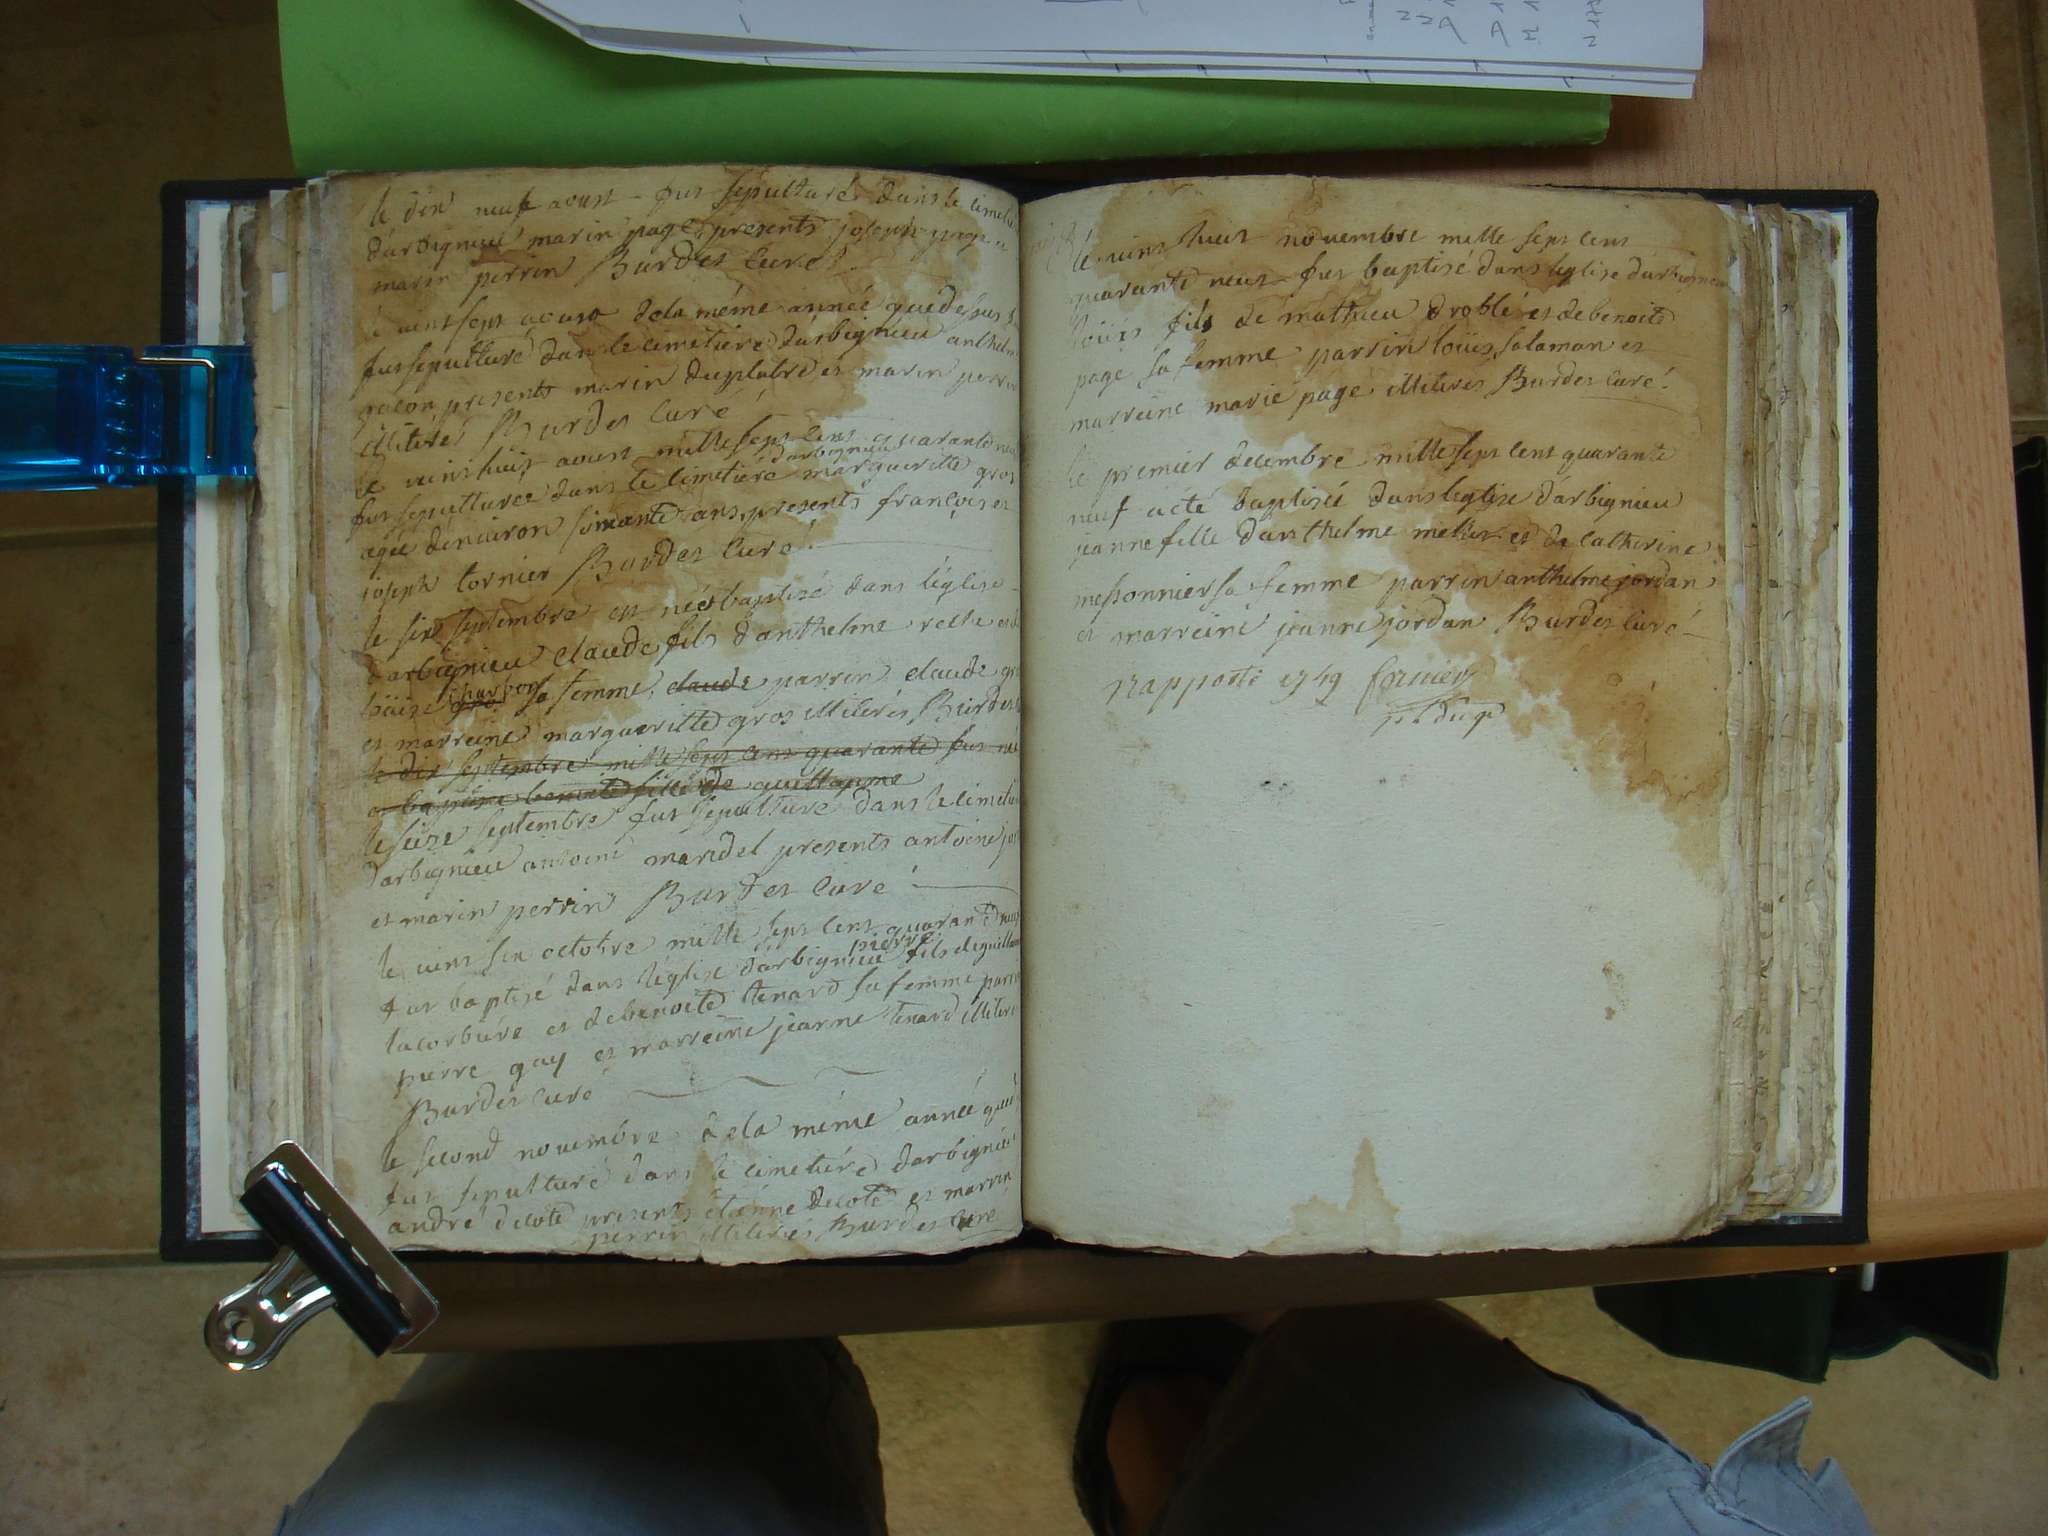 le dix neuf aoust fut sepulturé dans le cimetie
darbignieu marin page presents joseph page e
marin perrin Burdet curé
le vint sept aoust de la méme année que dessus
fut sepulturé dans le cimetiére darbignieu anthelm
presents marin duplabre et marin perrin
illiterés Burdet curé
le vint huit aoust mille sept cent quarante neu
darbignieu
fut sepulturee dans le cimetiére margueritte gros
agée denviron soixante ans presents françois et
joseph tornier Burdet curé
le six septembre est né et baptisé dans léglise
darbignieu claude fils danthelme
charbon
gros sa femme claude parrin claude gro
et marreine marguerittte gros illiterés Burdet
le dix septembre mille sept cent quarante fut né
baptisée benoite fille de guillaume
le seize septembre fut sepulturé dans le cimetié
darbignieu antoine mardel presents antoine
et marin perrin Burdet curé
le vint six octobre mille sept cent quarante neuf
pierre
fut baptisé dans léglise darbignieu fils de guillau
lacorbiére et de benoite tenard sa femme parr
pierre gay et marreine jeanne tenard illiter
Burdet curé
le second novembre de la méme année que
fut sepulturé dans le cimetiére darbignieu
andré decote presents étienne decote et marrin
perrin illiterés Burdet curé
le vint huit novembre mille sept cent
quarante neuf fut baptisé dans léglise darbignieu
loüis fils de mathieu droblé et de benoite
page sa femme parrin loüis salaman et
marreine marie page illiterés Burdet curé
le premier decembre mille sept cent quarante
neuf a été baptisée dans léglise darbignieu
jeanne fille danthelme mettet et de catherine
messonnier sa femme parrin anthelme jordan
et marreine jeanne jordan Burdet curé
Rapporté 1749